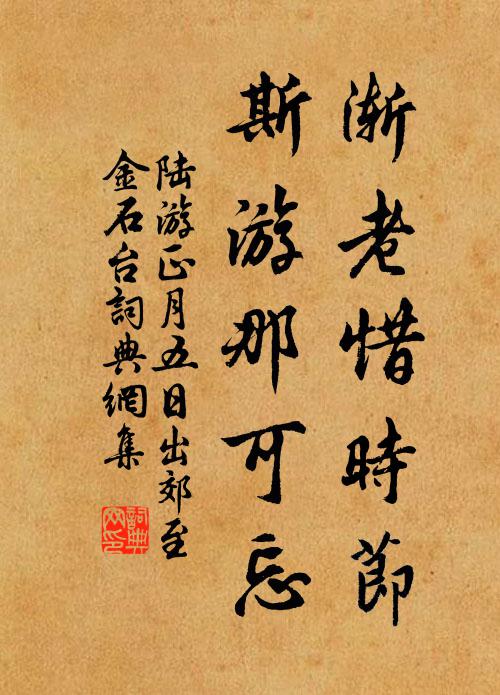 渐老惜時節
斯游那可忘
陸游正月五日出郊至
金石台詞典網集
詞典